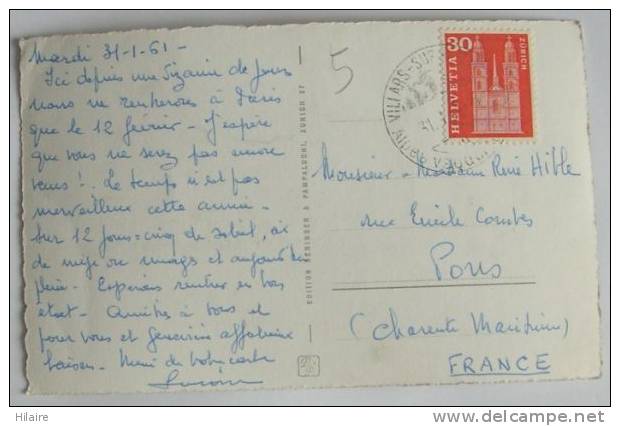 Mardi 31-1-61-
Ici depuis une dizaine de jours
nous ne rentrerons à Paris
que le 12 février - J'espère
que vous ne serez pas encore
venus! Le temps n'est pas
merveilleux cette année
Sur 12 jours = cinq de soleil,
de neige ou nuages et aujourd'hui
pluie - Espérons rentrer en bon
état - Amitiés à tous et
pour vous et affectueux
baisers - Merci de votre carte
5
EDITION BERINGER & PAMPALUCHI, ZURICH 27
30
HELVETIA
ZÜRICH
VILLARS-SUR
31.
Monsieur - Madame René Hible
rue Emile Combes
Pons
(Charente Maritime)
FRANCE
Hilaire
http://www.delcampe.net